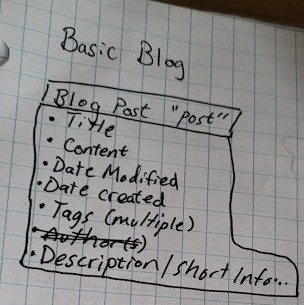 Basic Blog
Blog Post "post"
• Title
• Content
• Date Modified
• Date created
• Tags (multiple)
• Author(s)
• Description/short Info...